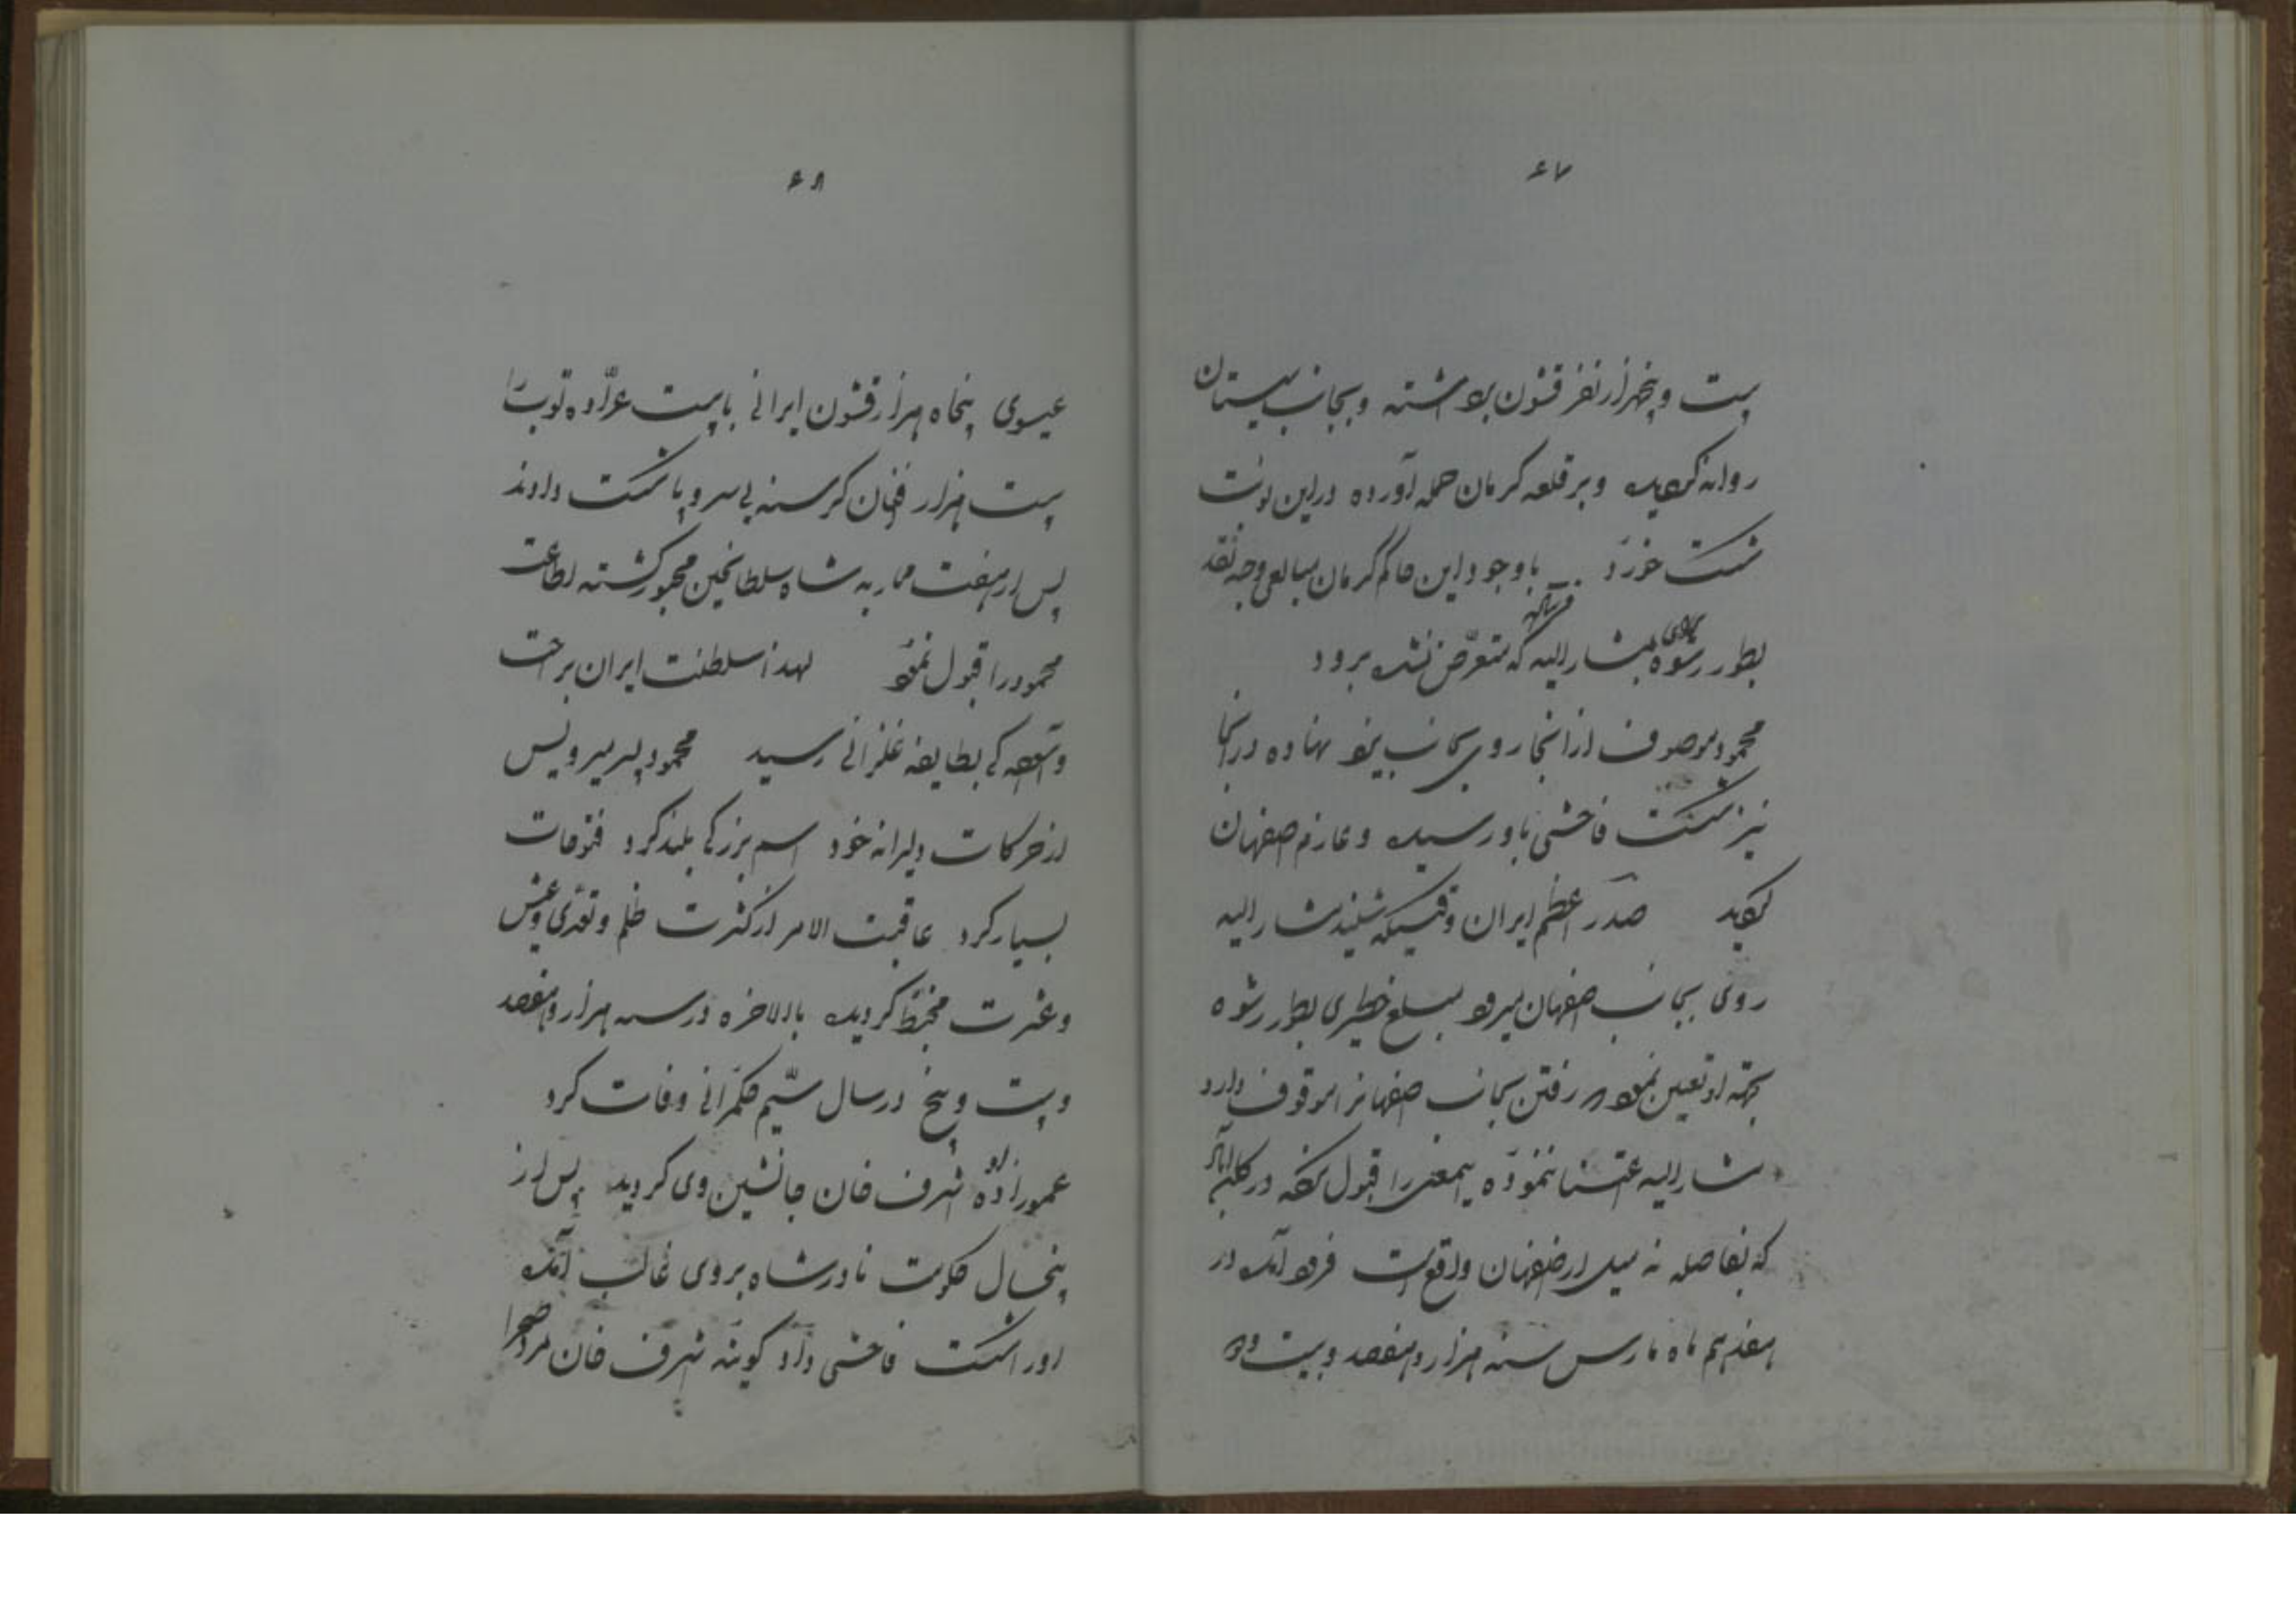 ۶۷
بیست و پنجهزار نفر قشون برداشته و بجانب سیستان
روانه گردید و بر قلعه کرمان حمله آورده در این نوبت
شکست خورد با وجود این حاکم کرمان مبالغی وجه نقد
بطور رشوه بمشار الیه که متعرض نشده برود
محمود موصوف از انجا روی بجانب یزد نهاده در انجا
نیز شکست فاحشی باو رسیده و عازم صفهان
گردید صدر اعظم ایران وقتیکه شنید مشار الیه
روی بجانب صفهان میرود مبلغ خطیری بطور رشوه
بجهته او تعیین نموده رفتن بجانب صفهانرا موقوف دارد
مشار الیه اعتنا ننموده اینمعنی را قبول نکرده در گلناباد
که بفاصله نه میل از صفهان واقع است فرود آمده در
هفدهم ماه مارس سنه هزار و هفتصد و بیست و دو
۶۸
عیسوی پنجاه هزار قشون ایرانی با بیست عراده توپ را
بیست هزار افغان گرسنه بی سر و پا شکست دادند
پس از هفت محاربه شاه سلطانحسین مجبور گشته اطاعت
محمود را قبول نمود لهذا سلطنت ایران براحت
و آسودگی بطایفه غلزائی رسید محمود پسر میر ویس
از حرکات دلیرانه خود اسم بزرگی بلند کرد فتوحات
بسیار کرد عاقبت الامر از کثرت ظلم و تعدی و عیش
و عشرت مخبط گردیده بالاخره در سنه هزار و هفتصد
و بیست و پنج در سال سیم حکمرانی وفات کرد
عموزاده او شرف خان جانشین وی گردید پس از
پنجسال حکومت نادر شاه بروی غالب آمده
او را شکست فاحشی داد گویند شرف خان در صحرا